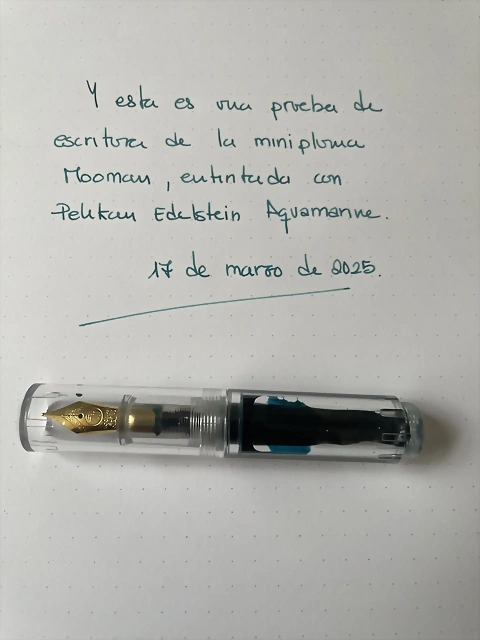 Y esta es una prueba de
escritura de la minipluma
Mooman, entintada con
Pelikan Edelstein Aquamarine.
17 de marzo de 2025.